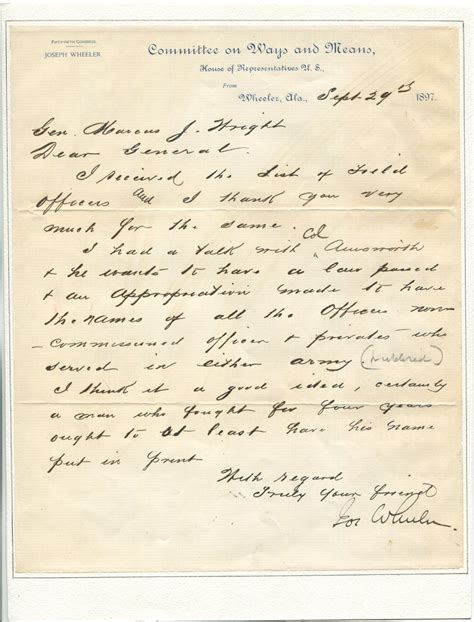 FIFTY-FIFTH CONGRESS.
JOSEPH WHEELER.
Committee on Ways and Means,
House of Representatives U. S.,
From
Wheeler, Ala., Sept 29th 1897.
Gen. Marcus J. Wright
Dear General.
I received the List of Field
officers and I thank you very
much for the same.
I had a talk with Col Ainsworth
& he wants to have a law passed
& an Appropriation made to have
the names of all the Officers non
-commissioned officers & privates who
served in either army
I think it a good idea, certainly
a man who fought for four years
ought to at least have his name
put in print
With regard
Truly your friend
Jos Wheeler